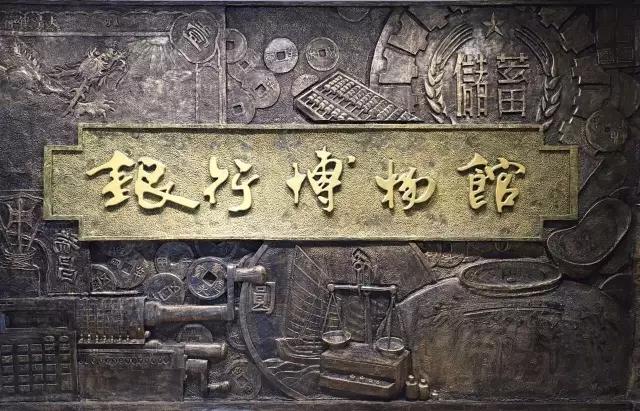 儲蓄
銀行博物館